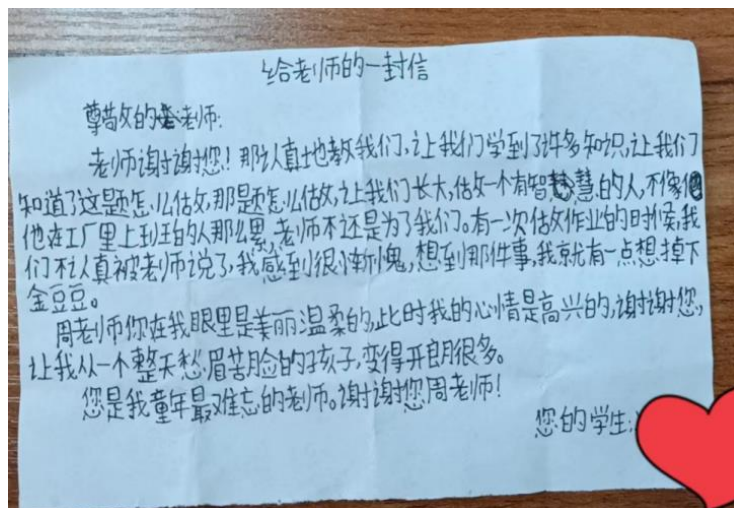 给老师的一封信
尊敬的老师:
老师谢谢您！那么认真地教我们,让我们学到了许多知识,让我们
知道了这题怎么做,那是题怎么做,让我们长大,做一个有智慧的人,不像
他在工厂里上班的人那么累,老师不还是为了我们。有一次做作业的时候,我
们不认真被老师说了,我感到很惭愧,想到那件事,我就有一点想掉下
金豆豆。
周老师你在我眼里是美丽温柔的,此时我的心情是高兴的,谢谢您,
让我从一个整天愁眉苦脸的孩子,变得开朗很多。
您是我童年最难忘的老师。谢谢您周老师！
您的学生: